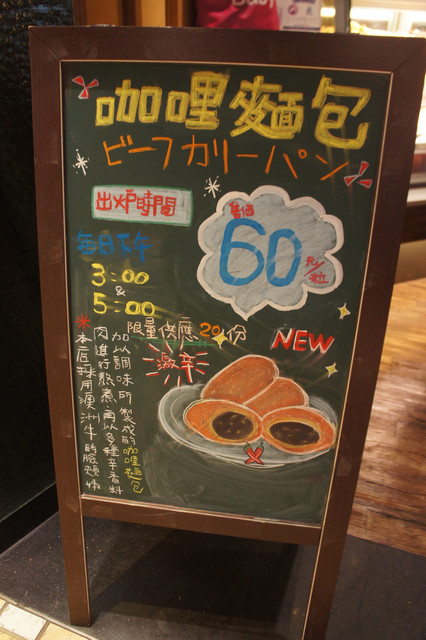 咖哩麵包
ビーフカリーパン
出炉時間
每日下午
3:00
&
5:00
售價
60
元/粒
限量供應20份
激辛
NEW
*本店採用澳洲牛的臉頰嫩
肉進行熬煮,再以多種辛香料
加以調味所製成的咖哩麵包